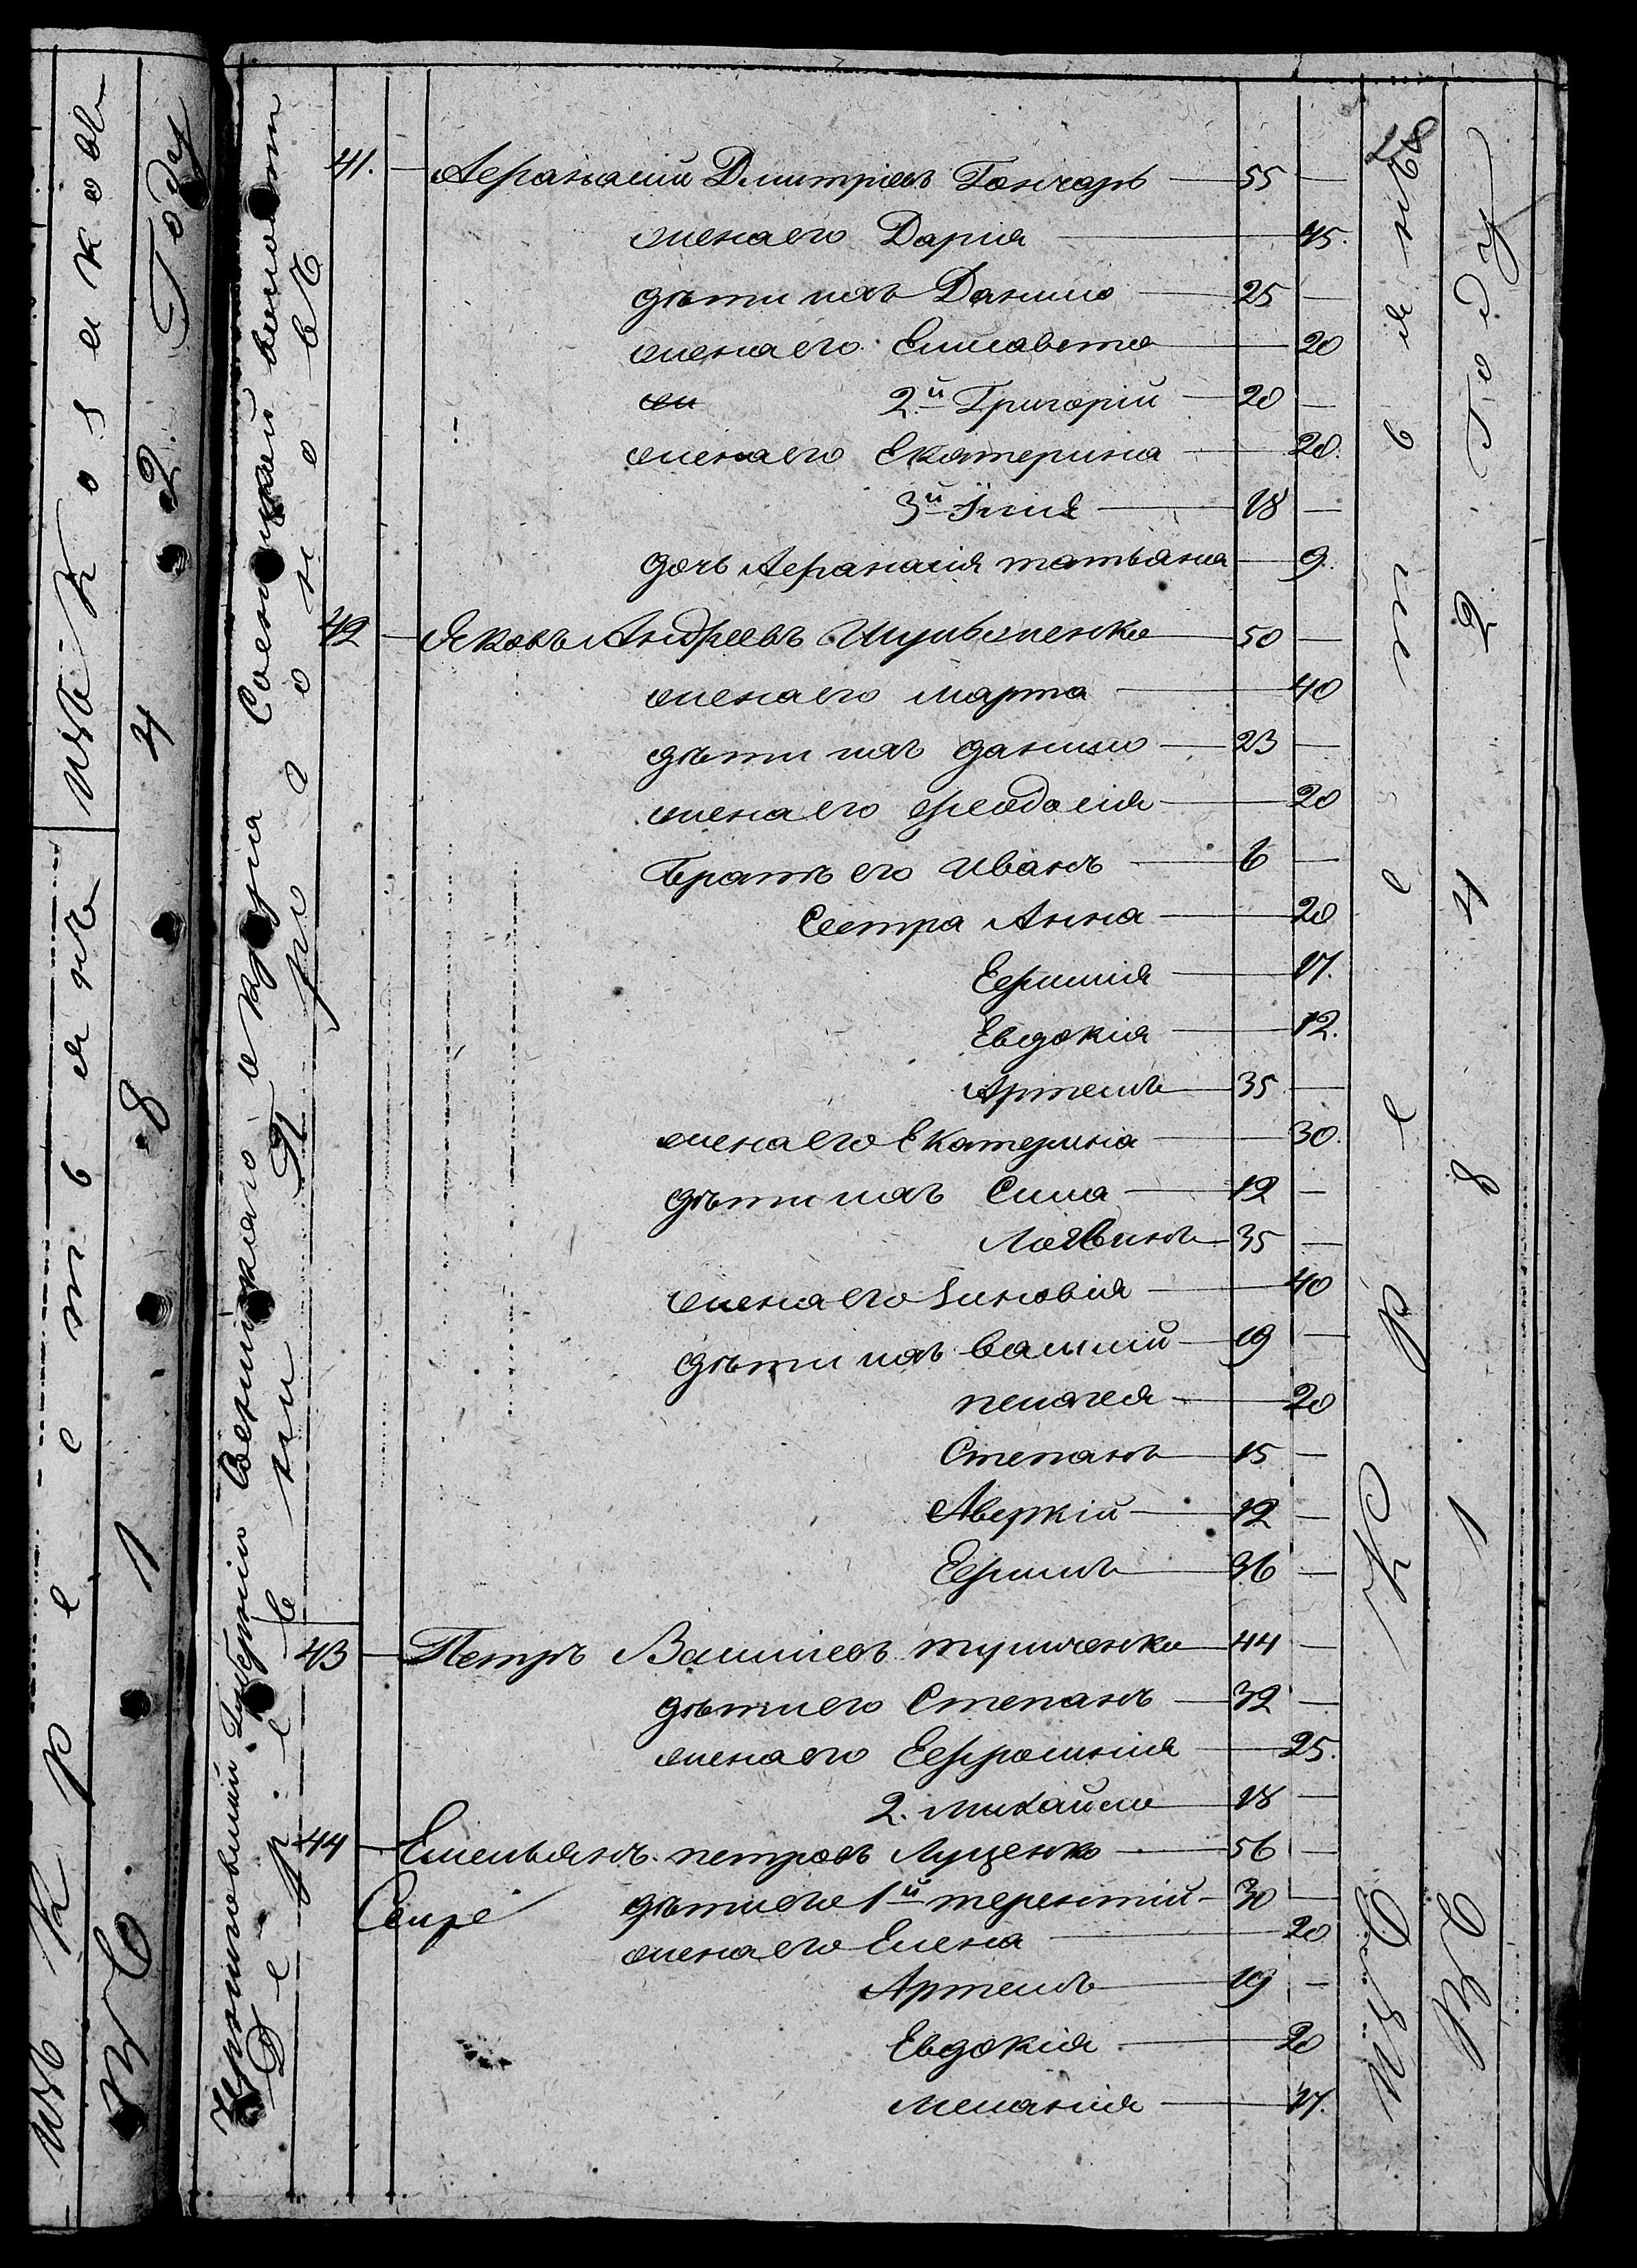 изъ Крестьянъ
изъ Козаковъ
въ 1842 Году
Черниговской Губерніи Сосницкаго округа Сосницкой волости
Деревни
41. Афанасій Дмитріевъ Гончаръ 55 —
жена его Дарія 45.
дѣти ихъ Данило 25 —
жена его Елисавета 20
2й Григорій 20 —
жена его Екатерина 20.
3й Илія 18 —
дочь Афанасія татьяна 9.
42 Яковъ Андреевъ Шульженко 50 —
жена его марта 40
дѣти ихъ данило 23 —
жена его феодосія 20
Братъ его иванъ 6 —
Сестра Анна 20
Ефимія 17.
Евдокія 12.
Артемъ 35 —
жена его Екатерина 30.
дѣти ихъ Сила 12 —
Логвинъ 35 —
жена его Зиновія 40
дѣти ихъ василій 19 —
пелагея 20
Степанъ 15 —
Аверкій 12 —
Ефимъ 36 —
43 Петръ Василіевъ 44 —
дѣти его Степанъ 32 —
жена его Ефросинія 25.
2. михайло 18 —
44 Емельянъ петровъ Луценко 56 —
дѣти его 1й терентій 30 —
жена его Елена 20
Артемъ 19 —
Евдокія 20
меланія 17.
Изъ Крестьянъ
въ 1842 Году